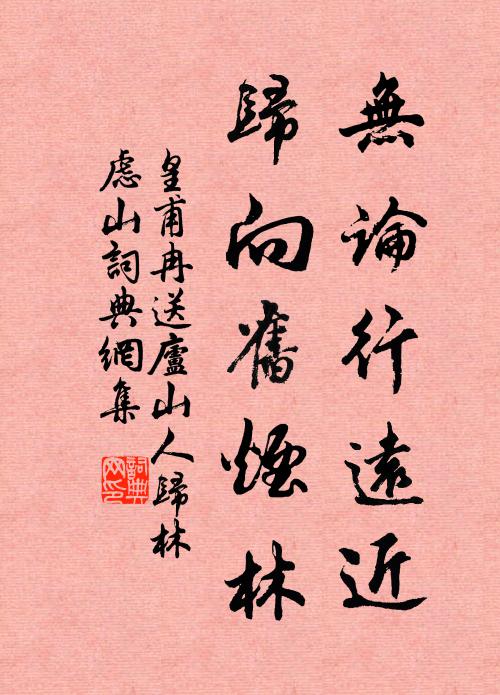 無論行遠近
歸向舊煙林
皇甫冉送廬山人歸林
慮山詞典網集
詞典網印